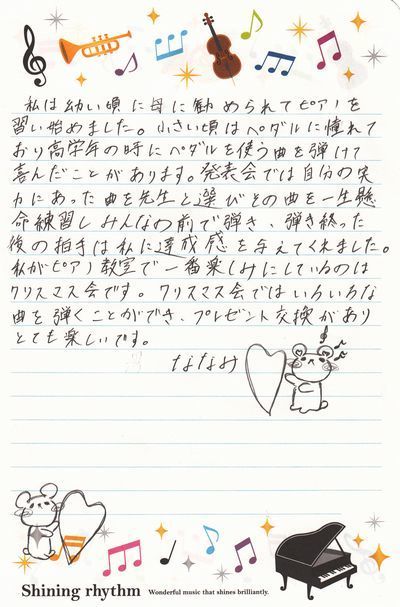 私は幼い頃に母に勧められてピアノを
習い始めました。小さい頃はペダルに憧れて
おり高学年の時にペダルを使う曲を弾けて
喜んだことがあります。発表会では自分の実
力にあった曲を先生と選びその曲を一生懸
命練習しみんなの前で弾き、弾き終った
後の拍手は私に達成感を与えてくれました。
私がピアノ教室で一番楽しみにしているのは
クリスマス会です。クリスマス会ではいろいろな
曲を弾くことができ、プレゼント交換があり
とても楽しいです。
ななみ
Shining rhythm Wonderful music that shines brilliantly.